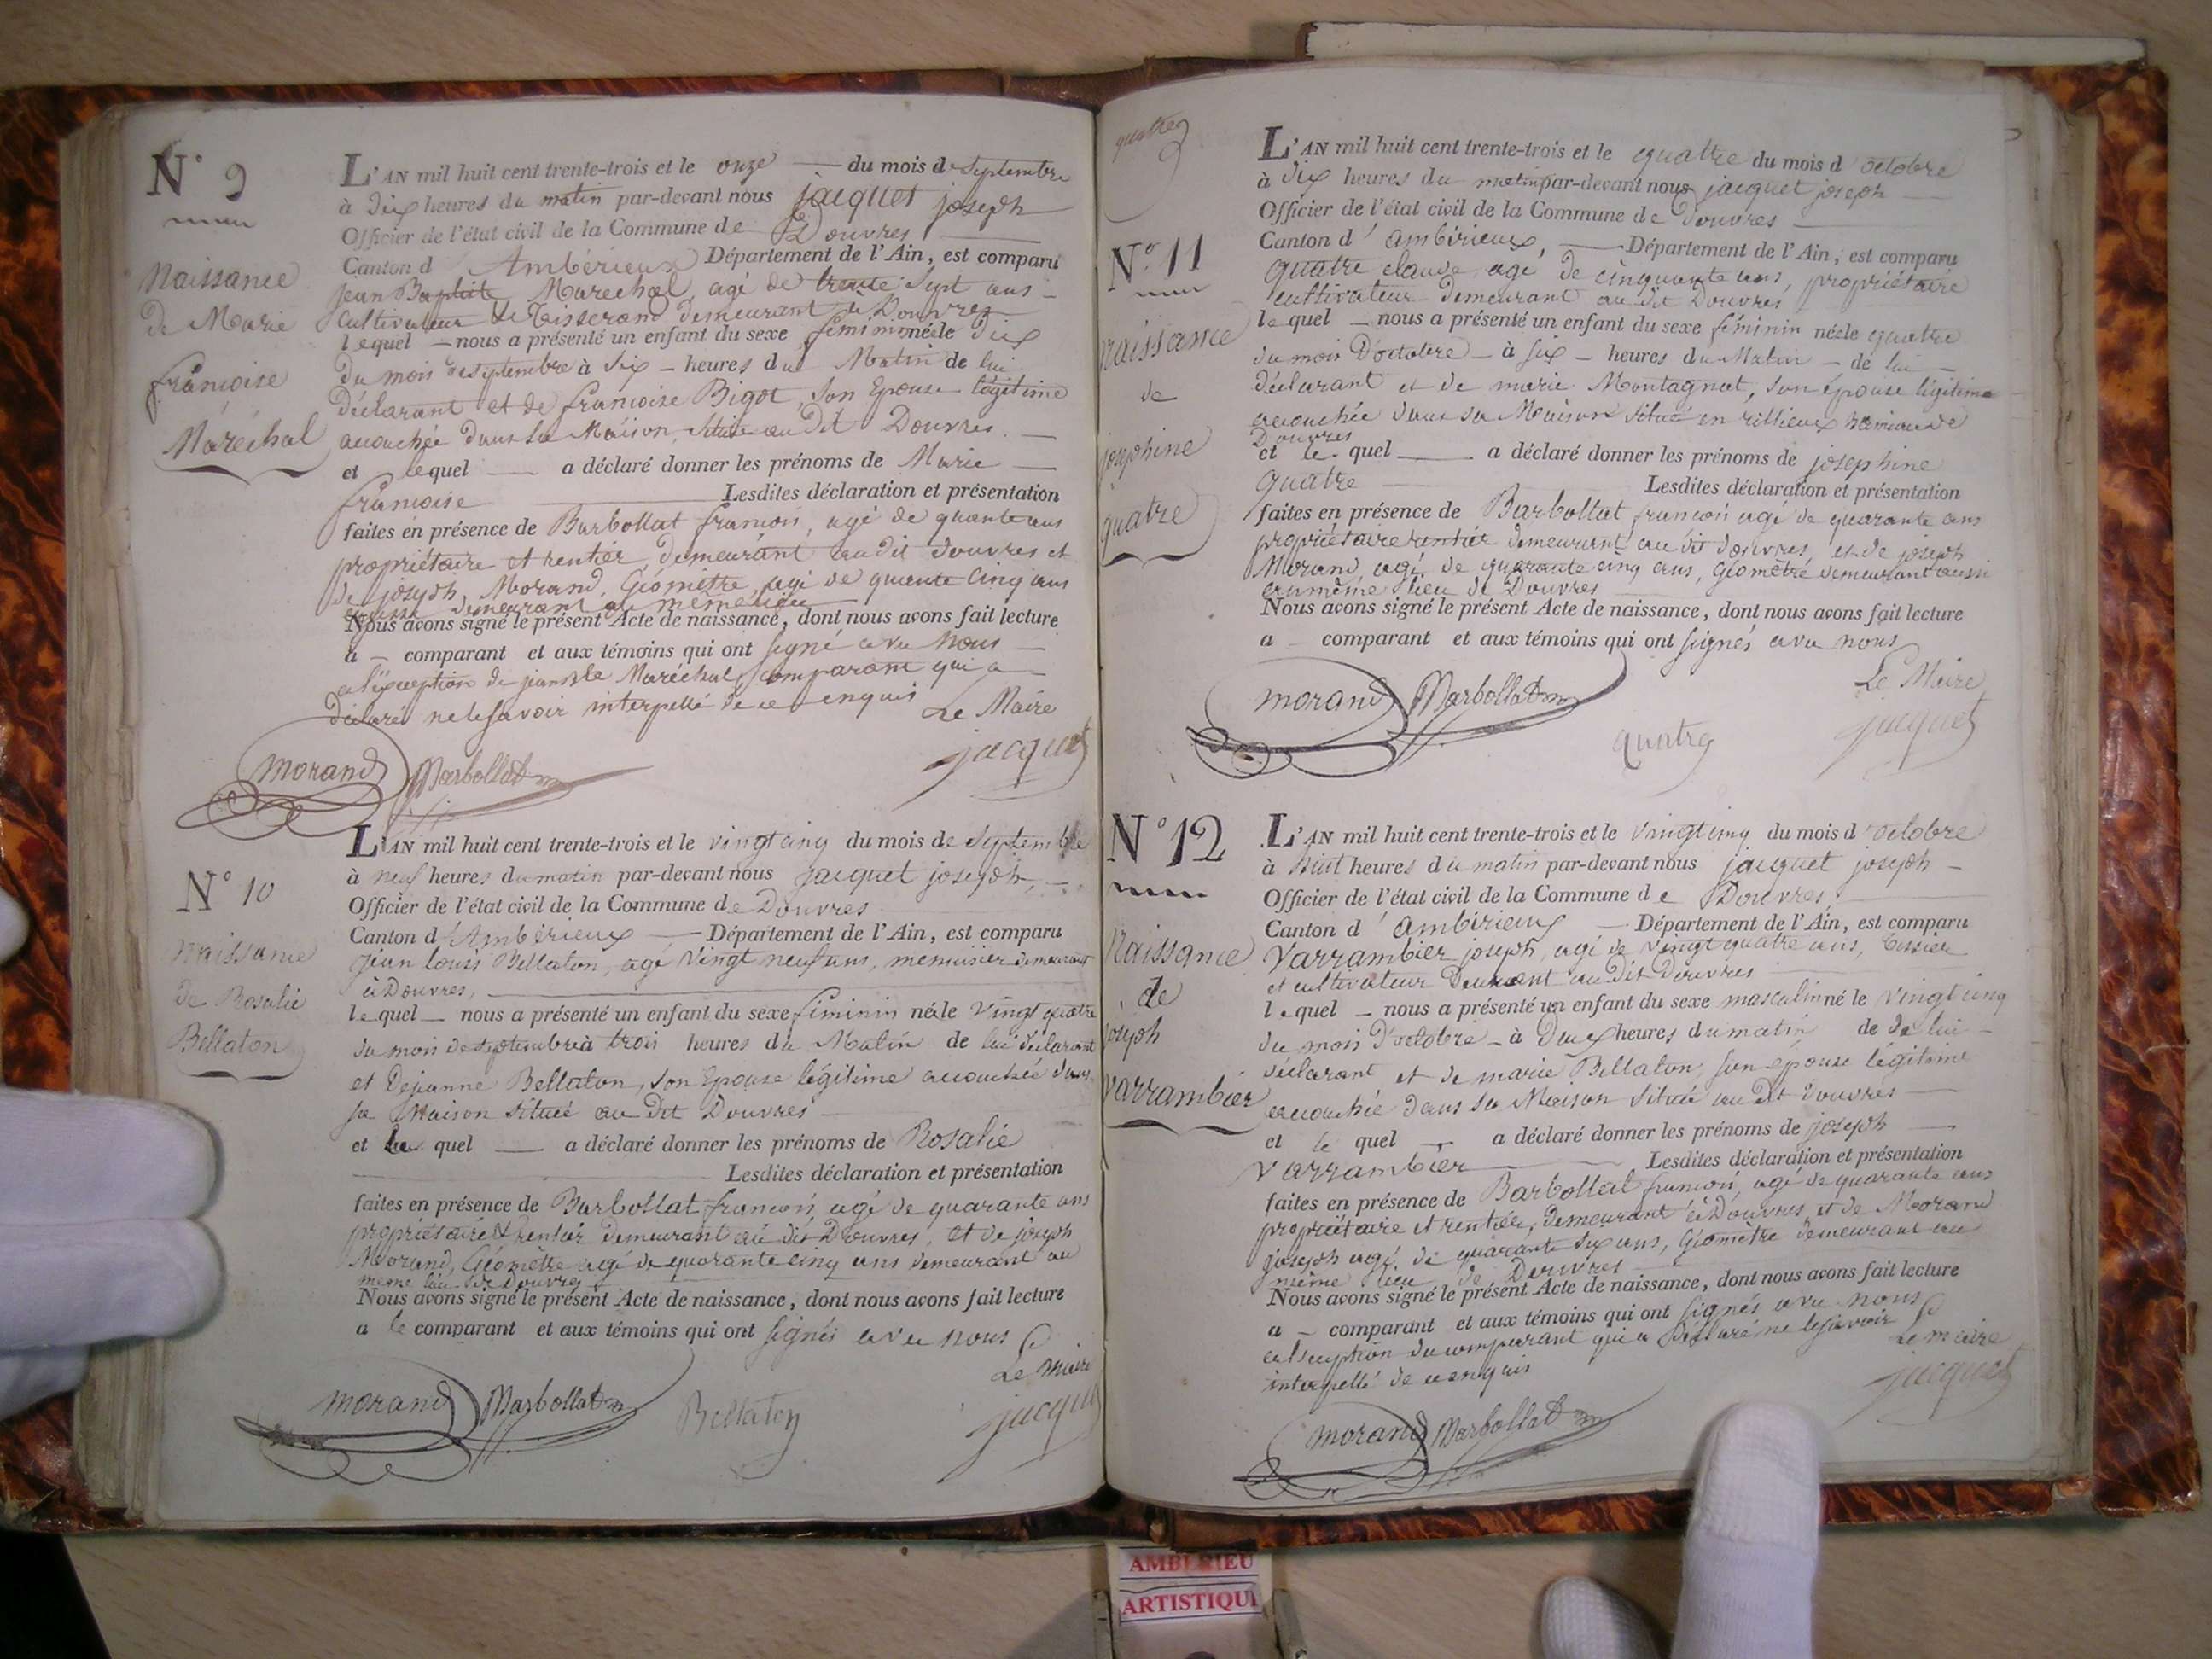 N° 9
Naissance
de Marie
françoise
Maréchal
L'AN mil huit cent trente-trois et le onze du mois de Septembre
à dix heures du matin par-devant nous jacquet joseph
Officier de l'état civil de la Commune de Douvres
Canton d Ambérieux Département de l'Ain, est comparu
jean Baptiste Marechal, agé de trente Sept ans
Cultivateur et Tisserand demeurant à Douvres
lequel nous a présenté un enfant du sexe féminin née le dix
du mois de septembre à Six heures du Matin de lui
déclarant et de francoise Bigot, Son Epouse légitime
acouchée dans sa Maison, Située au dit Douvres.
et lequel a déclaré donner les prénoms de Marie
francoise Lesdites déclaration et présentation
faites en présence de Barbollat francois, agé de quante ans
propriétaire et rentier, demeurant au dit douvres et
de joseph Morand, Géomètre, agé de quante Cinq ans
demeurant au même lieu
Nous avons signé le présent Acte de naissance, dont nous avons fait lecture
a comparant et aux témoins qui ont signé avu Nous
a l'exception de jean Bte Maréchal, Comparant qui a
déclaré ne le savoir interpellé de ce enquis
Le Maire
morand Barbollat jacquet
N° 10
naissance
de Rosalie
Bellaton
L'AN mil huit cent trente-trois et le vingt cinq du mois de Septembre
à neuf heures du matin par-devant nous jacquet joseph,
Officier de l'état civil de la Commune de Douvres
Canton d'Ambérieux Département de l'Ain, est comparu
jean louis Bellaton, agé Vingt neuf ans, menuisier demeurant
à Douvres,
lequel nous a présenté un enfant du sexe féminin née le Vingt quatre
du mois de septembre à trois heures du Matin de lui déclarant
et de jeanne Bellaton, son Epouse légitime acouchée dans
sa Maison Située au Dit Douvres
et le quel a déclaré donner les prénoms de Rosalie
Lesdites déclaration et présentation
faites en présence de Barbollat francois, agé de quarante ans
propriétaire & rentier demeurant au dit Douvres, et de joseph
Morand, Géomètre agé de quarante cinq ans demeurant au
meme lieu de Douvres
Nous avons signé le présent Acte de naissance, dont nous avons fait lecture
a le comparant et aux témoins qui ont signés avu nous
Le Maire
morand Barbollat Bellaton jacquet
quatre
N° 11
naissance
de
josephine
quatre
L'AN mil huit cent trente-trois et le quatre du mois d'octobre
à dix heures du matin par-devant nous jacquet joseph
Officier de l'état civil de la Commune de Douvres
Canton d'ambérieux, Département de l'Ain, est comparu
quatre claude agé de cinquante ans, propriétaire
cultivateur demeurant au dit Douvres
lequel nous a présenté un enfant du sexe féminin née le quatre
du mois D'octobre à six heures du Matin de lui
déclarant et de marie Montagnat, son épouse légitime
acouchée dans sa Maison située en rillieux hamiau de
Douvres
et le quel a déclaré donner les prénoms de josephine
quatre Lesdites déclaration et présentation
faites en présence de Barbollat francois agé de quarante ans
propriétaire rentier demeurant au dit douvres, et de joseph
Morand agé de quarante cinq ans, Géomètre demeurant aussi
au même lieu de Douvres
Nous avons signé le présent Acte de naissance, dont nous avons fait lecture
a comparant et aux témoins qui ont signés avu nous
Le Maire
morand Barbollat quatre jacquet
N° 12
Naissance
de
joseph
Varrambier
L'AN mil huit cent trente-trois et le Vingt cinq du mois d'octobre
à huit heures du matin par-devant nous jacquet joseph
Officier de l'état civil de la Commune de Douvres,
Canton d'ambérieux Département de l'Ain, est comparu
Varrambier joseph, agé de vingt quatre ans, tissier
et cultivateur Deurant au dit Douvres
lequel nous a présenté un enfant du sexe masculin né le Vingt cinq
du mois D'octobre à Deux heures du matin de de lui
déclarant et de marie Bellaton, son épouse légitime
acouchée dans sa Maison située au dit douvres
et le quel a déclaré donner les prénoms de joseph
Varrambier Lesdites déclaration et présentation
faites en présence de Barbollat francois, agé de quarante ans
propriétaire et rentier, demeurant à Douvres, et de Morand
joseph agé de quarante six ans, Géomètre demeurant au
même lieu de Douvres
Nous avons signé le présent Acte de naissance, dont nous avons fait lecture
a comparant et aux témoins qui ont signés avu nous
du comparant qui a déclaré ne le savoir
interpellé de ce enquis
Le maire
morand Barbollat jacquet
AMBERIEU
ARTISTIQUE